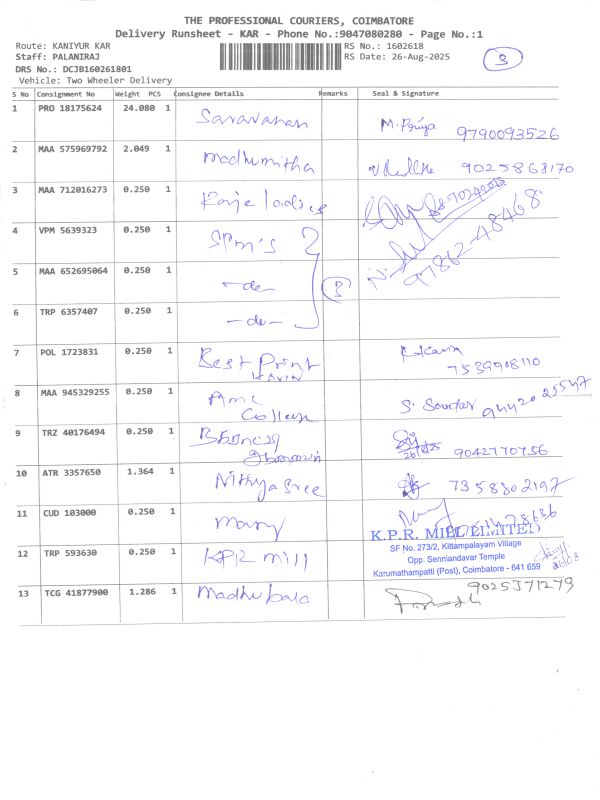 THE PROFESSIONAL COURIERS, COIMBATORE
Delivery Runsheet - KAR - Phone No.:9047080280 - Page No.:1
Route: KANIYUR KAR RS No.: 1602618
Staff: PALANIRAJ RS Date: 26-Aug-2025
DRS No.: DCJB160261801
Vehicle: Two Wheeler Delivery
S No Consignment No Weight PCS Consignee Details Remarks Seal & Signature
1 PRO 18175624 24.080 1 Saravanan M. Priya 9790093526
2 MAA 575969792 2.049 1 Madhumitha 9025868170
3 MAA 712016273 0.250 1
4 VPM 5639323 0.250 1 SPM's 97862-48468
5 MAA 652695064 0.250 1 -do-
6 TRP 6357407 0.250 1 -do-
7 POL 1723831 0.250 1 Best Print
KAVIN 7539908110
8 MAA 945329255 0.250 1 AMC
College
9 TRZ 40176494 0.250 1 9042770756
10 ATR 3357650 1.364 1 Nithya Sree 7358802197
11 CUD 103000 0.250 1 Mary
K.P.R. MILL LIMITED
SF No. 273/2, Kittampalayam Village
12 TRP 593630 0.250 1 KPR mill Opp. Senniandavar Temple
Karumathampatti (Post), Coimbatore - 641 659
13 TCG 41877900 1.286 1 Madhubala 9025371279